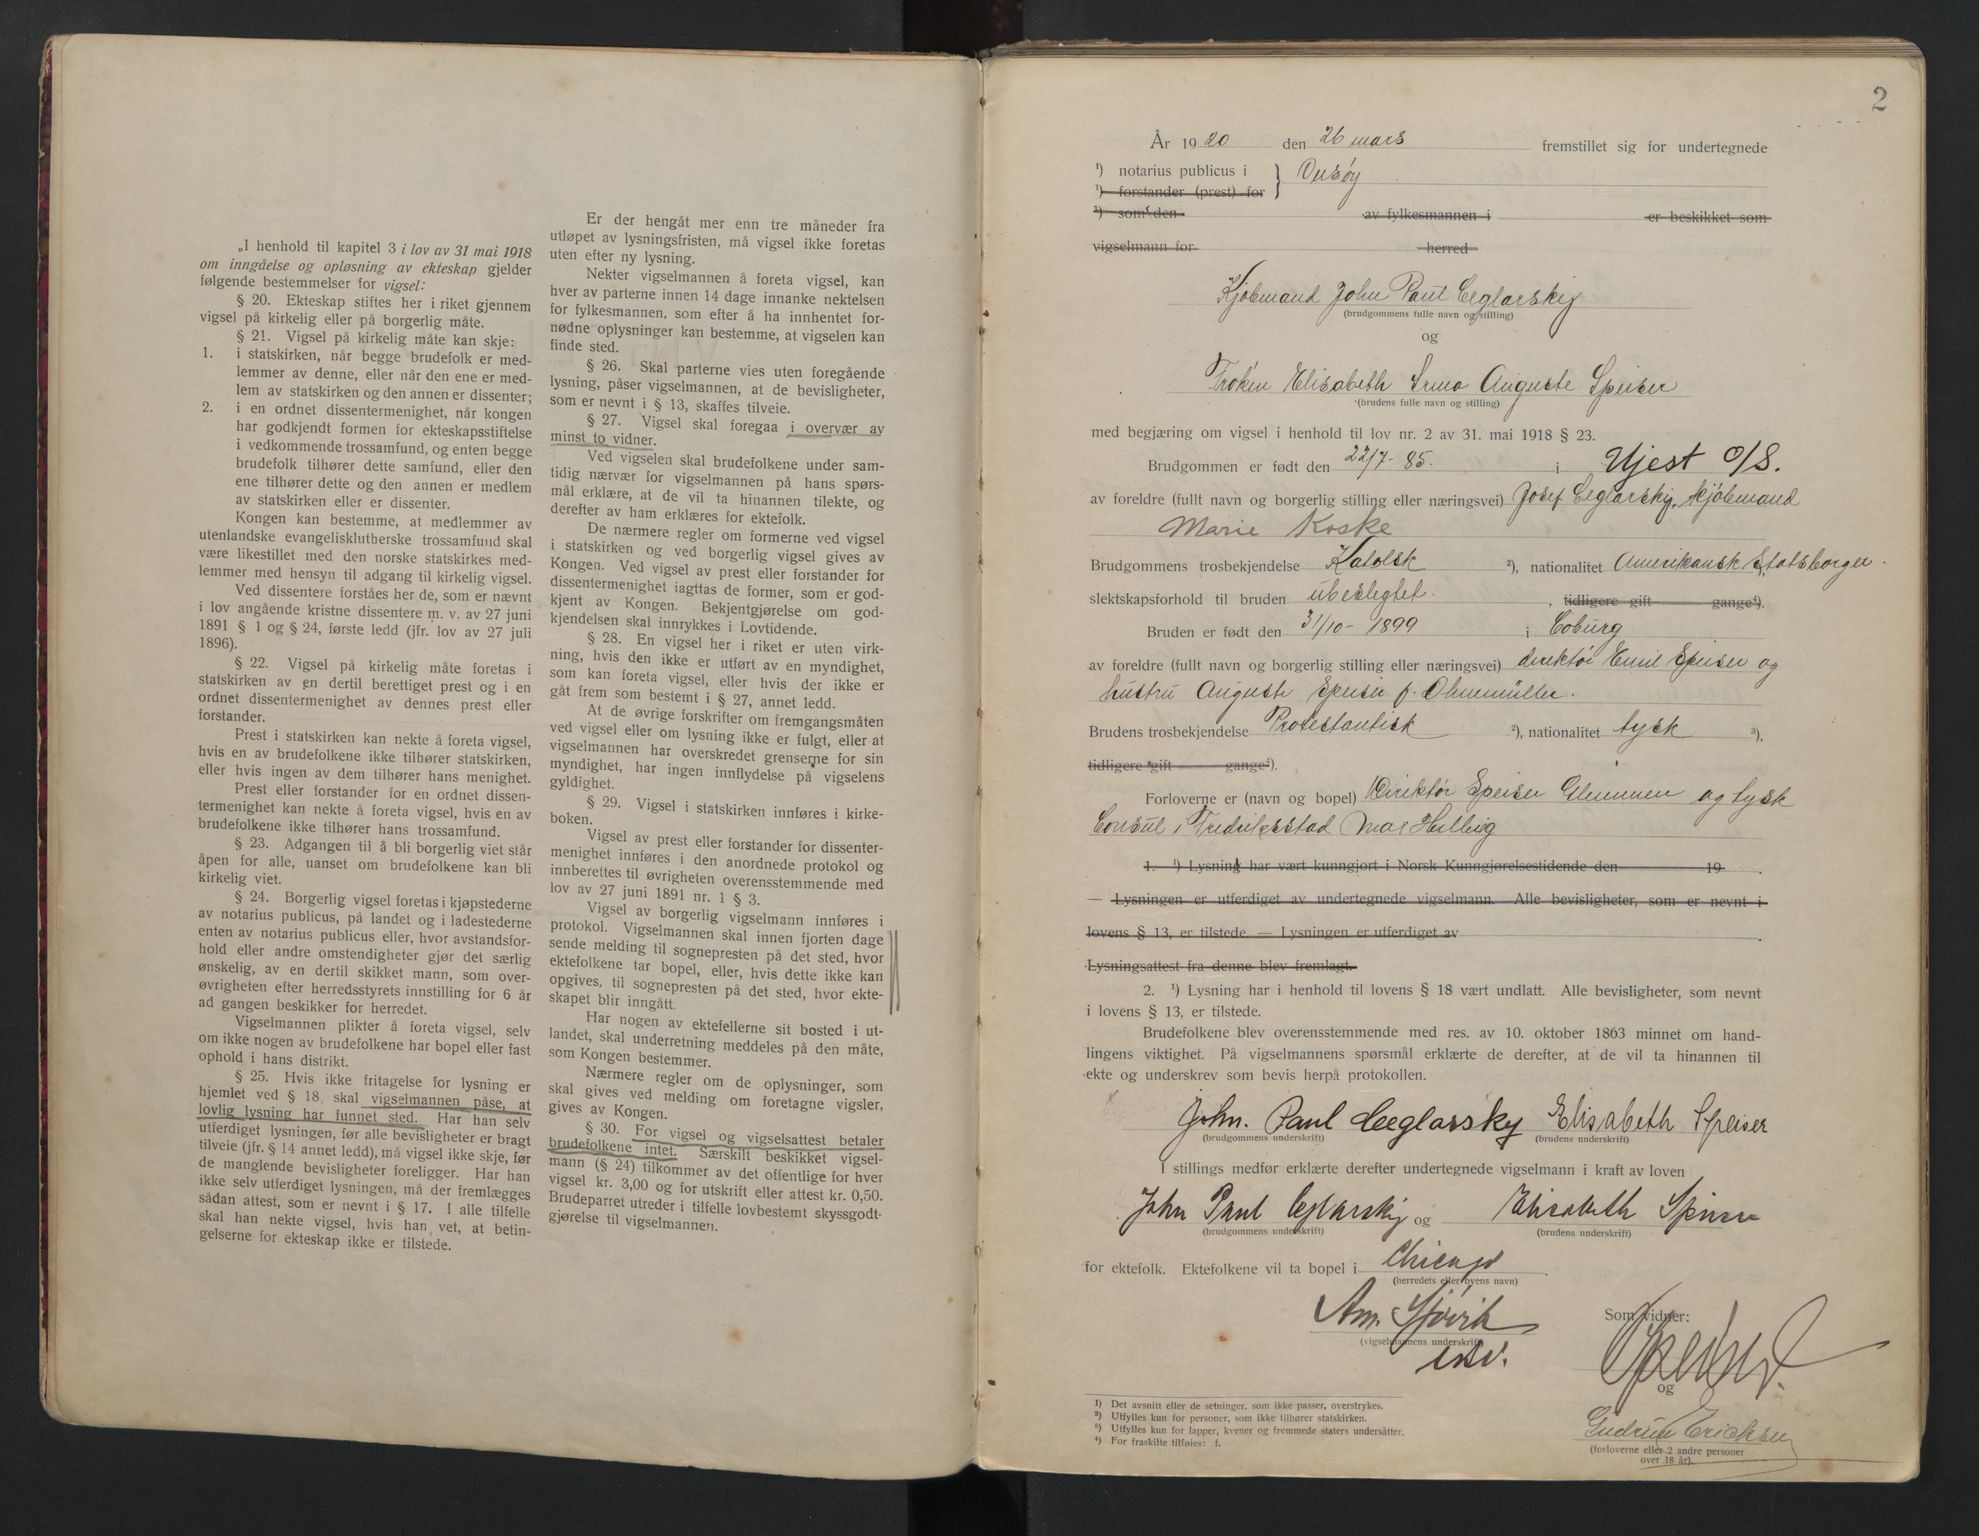 „I henhold til kapitel 3 i lov av 31 mai 1918
om inngåelse og opløsning av ekteskap gjelder
følgende bestemmelser for vigsel:
§ 20. Ekteskap stiftes her i riket gjennem
vigsel på kirkelig eller på borgerlig måte.
§ 21. Vigsel på kirkelig måte kan skje:
1. i statskirken, når begge brudefolk er med-
lemmer av denne, eller når den ene er med-
lem av statskirken og den annen er dissenter;
2. i en ordnet dissentermenighet, når kongen
har godkjendt formen for ekteskapsstiftelse
i vedkommende trossamfund, og enten begge
brudefolk tilhører dette samfund, eller den
ene tilhører dette og den annen er medlem
av statskirken eller er dissenter.
Kongen kan bestemme, at medlemmer av
utenlandske evangelisklutherske trossamfund skal
være likestillet med den norske statskirkes med-
lemmer med hensyn til adgang til kirkelig vigsel.
Ved dissentere forståes her de, som er nævnt
i lov angående kristne dissentere m. v. av 27 juni
1891 § 1 og § 24, første ledd (jfr. lov av 27 juli
1896).
§ 22. Vigsel på kirkelig måte foretas i
statskirken av en dertil berettiget prest og i en
ordnet dissentermenighet av dennes prest eller
forstander.
Prest i statskirken kan nekte å foreta vigsel,
hvis en av brudefolkene ikke tilhører statskirken,
eller hvis ingen av dem tilhører hans menighet.
Prest eller forstander for en ordnet dissen-
termenighet kan nekte å foreta vigsel, hvis en av
brudefolkene ikke tilhører hans trossamfund.
§ 23. Adgangen til å bli borgerlig viet står
åpen for alle, uanset om brudefolkene kan bli
kirkelig viet.
§ 24. Borgerlig vigsel foretas i kjøpstederne
av notarius publicus, på landet og i ladestederne
enten av notarius publicus eller, hvor avstandsfor-
hold eller andre omstendigheter gjør det særlig
ønskelig, av en dertil skikket mann, som over-
øvrigheten efter herredsstyrets innstilling for 6 år
ad gangen beskikker for herredet.
Vigselmannen plikter å foreta vigsel, selv
om ikke nogen av brudefolkene har bopel eller fast
ophold i hans distrikt.
§ 25. Hvis ikke fritagelse for lysning er
hjemlet ved § 18, skal vigselmannen påse, at
lovlig lysning har funnet sted. Har han selv
utferdiget lysningen, før alle bevisligheter er bragt
tilveie (jfr. § 14 annet ledd), må vigsel ikke skje, før
de manglende bevisligheter foreligger. Har han
ikke selv utferdiget lysningen, må der fremlægges
sådan attest, som er nevnt i § 17. I alle tilfelle
skal han nekte vigsel, hvis han vet, at betin-
gelserne for ekteskap ikke er tilstede.
Er der hengåt mer enn tre måneder fra
utløpet av lysningsfristen, må vigsel ikke foretas
uten efter ny lysning.
Nekter vigselmannen å foreta vigsel, kan
hver av parterne innen 14 dage innanke nektelsen
for fylkesmannen, som efter å ha innhentet for-
nødne oplysninger kan bestemme, at vigselen kan
finde sted.
§ 26. Skal parterne vies uten foregående
lysning, påser vigselmannen, at de bevisligheter,
som er nevnt i § 13, skaffes tilveie.
§ 27. Vigsel skal foregaa i overvær av
minst to vidner.
Ved vigselen skal brudefolkene under sam-
tidig nærvær for vigselmannen på hans spørs-
mål erklære, at de vil ta hinannen tilekte, og
derefter av ham erklæres for ektefolk.
De nærmere regler om formerne ved vigsel
i statskirken og ved borgerlig vigsel gives av
Kongen. Ved vigsel av prest eller forstander for
dissentermenighet iagttas de former, som er god-
kjent av Kongen. Bekjentgjørelse om god-
kjendelsen skal innrykkes i Lovtidende.
§ 28. En vigsel her i riket er uten virk-
ning, hvis den ikke er utført av en myndighet,
som kan foreta vigsel, eller hvis der ikke er
gåt frem som bestemt i § 27, annet ledd.
At de øvrige forskrifter om fremgangsmåten
ved vigsel eller om lysning ikke er fulgt, eller at
vigselmannen har overskredet grenserne for sin
myndighet, har ingen innflydelse på vigselens
gyldighet.
§ 29. Vigsel i statskirken innføres i kirke-
boken.
Vigsel av prest eller forstander for dissenter-
menighet innføres i den anordnede protokol og
innberettes til øvrigheten overensstemmende med
lov av 27 juni 1891 nr. 1 § 3.
Vigsel av borgerlig vigselmann innføres i
protokol. Vigselmannen skal innen fjorten dage
sende melding til sognepresten på det sted, hvor
ektefolkene tar bopel, eller, hvis dette ikke kan
opgives, til sognepresten på det sted, hvor ekte-
skapet blir inngått.
Har nogen av ektefellerne sit bosted i ut-
landet, skal underretning meddeles på den måte,
som Kongen bestemmer.
Nærmere regler om de oplysninger, som
skal gives ved melding om foretagne vigsler,
gives av Kongen.
§ 30. For vigsel og vigselsattest betaler
brudefolkene intet. Særskilt beskikket vigsel-
mann (§ 24) tilkommer av det offentlige for hver
vigsel kr. 3,00 og for utskrift eller attest kr. 0,50.
Brudeparret utreder i tilfelle lovbestemt skyssgodt-
gjørelse til vigselmannen.
2
År 1920 den 26 mars fremstillet sig for undertegnede
¹) notarius publicus i } Onsøy
¹) forstander (prest) for
¹) som den av fylkesmannen i er beskikket som
vigselmann for herred
Kjøbmand John Paul Ceglarsky
(brudgommens fulle navn og stilling)
og
Frøken Elisabeth Irma Auguste Speiser
(brudens fulle navn og stilling)
med begjæring om vigsel i henhold til lov nr. 2 av 31. mai 1918 § 23.
Brudgommen er født den 22/7-85. i Ujest O/S.
av foreldre (fullt navn og borgerlig stilling eller næringsvei) Josef Ceglarsky, kjøbmand
Marie Koske
Brudgommens trosbekjendelse Katolsk ²), nationalitet Amerikansk Statsborger.
slektskapsforhold til bruden ubeslegtet. , tidligere gift gange⁴).
Bruden er født den 31/10-1899 i Coburg
av foreldre (fullt navn og borgerlig stilling eller næringsvei) direktør Emil Speiser og
hustru Auguste Speiser f. Ohnemüller.
Brudens trosbekjendelse Protestantisk ²), nationalitet tysk ³),
tidligere gift gange⁴).
Forloverne er (navn og bopel) Direktør Speiser Glemmen og tysk
Consul i Fredriksstad Max Helbig
1. ¹) Lysning har vært kunngjort i Norsk Kunngjørelsestidende den 19 .
— Lysningen er utferdiget av undertegnede vigselmann. Alle bevisligheter, som er nevnt i
lovens § 13, er tilstede. — Lysningen er utferdiget av .
Lysningsattest fra denne blev fremlagt.
2. ¹) Lysning har i henhold til lovens § 18 vært undlatt. Alle bevisligheter, som nevnt
i lovens § 13, er tilstede.
Brudefolkene blev overensstemmende med res. av 10. oktober 1863 minnet om hand-
lingens viktighet. På vigselmannens spørsmål erklærte de derefter, at de vil ta hinannen til
ekte og underskrev som bevis herpå protokollen.
John. Paul Ceglarsky Elisabeth Speiser
(brudgommens underskrift) (brudens underskrift)
I stillings medfør erklærte derefter undertegnede vigselmann i kraft av loven
John Paul Ceglarsky og Elisabeth Speiser
(brudgommens underskrift) (brudens underskrift)
for ektefolk. Ektefolkene vil ta bopel i Chicago .
(herredets eller byens navn)
Am. Sjövik
(vigselmannens underskrift)
Som vidner:
Speiser
og
Gudrun Eriksen
(forloverne eller 2 andre personer
over 18 år).
¹) Det avsnitt eller de setninger, som ikke passer, overstrykes.
²) Utfylles kun for personer, som ikke tilhører statskirken.
³) Utfylles kun for lapper, kvener og fremmede staters undersåtter.
⁴) For fraskilte tilføies: f.